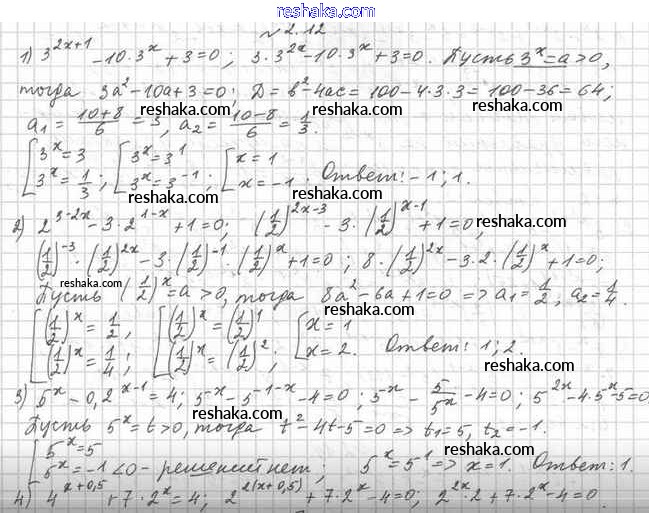 www.reshaka.com
№ 2.12
1) 3^{2x+1} - 10·3^x + 3 = 0; 3·3^{2x} - 10·3^x + 3 = 0. Пусть 3^x = a > 0,
тогда 3a² - 10a + 3 = 0; D = b² - 4ac = 100 - 4·3·3 = 100 - 36 = 64;
reshaka.com reshaka.com
a₁ = (10+8)/6 = 3, a₂ = (10-8)/6 = 1/3.
reshaka.com
[3^x = 3 [3^x = 3^1 [x = 1
[3^x = 1/3; [3^x = 3^{-1}; [x = -1. Ответ: -1; 1.
reshaka.com reshaka.com
2) 2^{3-2x} - 3·2^{1-x} + 1 = 0; (1/2)^{2x-3} - 3·(1/2)^{x-1} + 1 = 0;
reshaka.com
(1/2)^{-3}·(1/2)^{2x} - 3·(1/2)^{-1}·(1/2)^x + 1 = 0; 8·(1/2)^{2x} - 3·2·(1/2)^x + 1 = 0;
reshaka.com reshaka.com
Пусть (1/2)^x = a > 0, тогда 8a² - 6a + 1 = 0 => a₁ = 1/2, a₂ = 1/4.
reshaka.com
[(1/2)^x = 1/2, [(1/2)^x = (1/2)^1 [x = 1
[(1/2)^x = 1/4; [(1/2)^x = (1/2)^2; [x = 2. Ответ: 1; 2.
reshaka.com reshaka.com
3) 5^x - 0,2^{x-1} = 4; 5^x - 5^{1-x} - 4 = 0; 5^x - 5/5^x - 4 = 0; 5^{2x} - 4·5^x - 5 = 0
reshaka.com
Пусть 5^x = t > 0, тогда t² - 4t - 5 = 0 => t₁ = 5, t₂ = -1.
reshaka.com reshaka.com
[5^x = 5
[5^x = -1 < 0 - решений нет; 5^x = 5^1 => x = 1. Ответ: 1.
reshaka.com
4) 4^{x+0,5} + 7·2^x = 4; 2^{2(x+0,5)} + 7·2^x - 4 = 0; 2^{2x}·2 + 7·2^x - 4 = 0.
reshaka.com reshaka.com